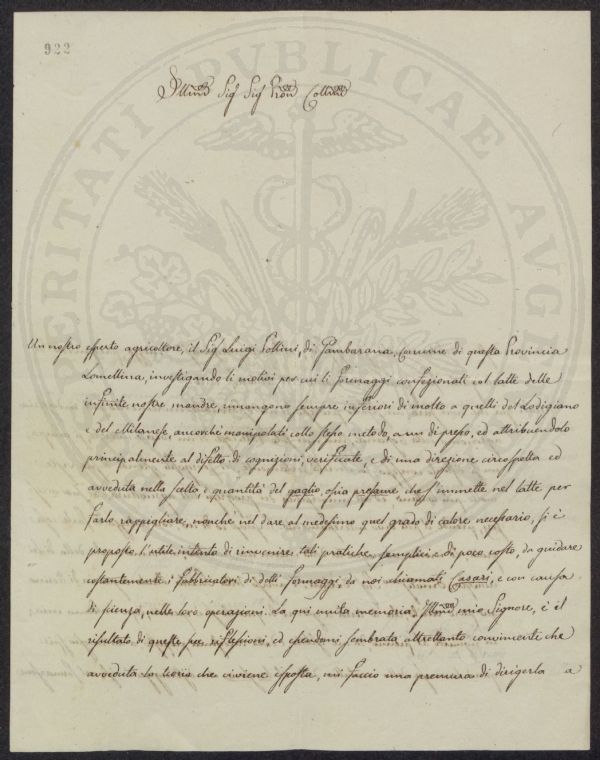 922
Illmo Sig.r Sig.r Pron Colmo
VERITATI PVBLICAE AVGA
Un nostro esperto agricoltore, il Sig.r Luigi Pollini, di Gambarana, Comune di questa Provincia
Lomellina, investigando li motivi per cui li formaggi confezionati col latte delle
infinite nostre mandre, rimangono sempre inferiori di molto a quelli del Lodigiano
e del Milanese, ancorchè manipolati collo stesso metodo, a un di presso, ed attribuendolo
principalmente al difetto di cognizioni, verificate, e di una direzione circospetta ed
avveduta nella scelta, e quantità del gaglio, ossia presame che s'immette nel latte per
farlo rappigliare, nonche nel dare al medesimo quel grado di calore necessario, si è
proposto l'utile intento di rinvenire tali pratiche semplici e di poco costo, da guidare
costantemente i fabbricatori di detti formaggi, da noi chiamati Casari, e con causa
di scienza, nelle loro operazioni. La qui unita memoria, Illmo mio Signore, è il
risultato di queste sue riflessioni, ed essendomi sembrata altrettanto convincente che
avveduta la teoria che ci viene esposta, mi faccio una premura di dirigerla a